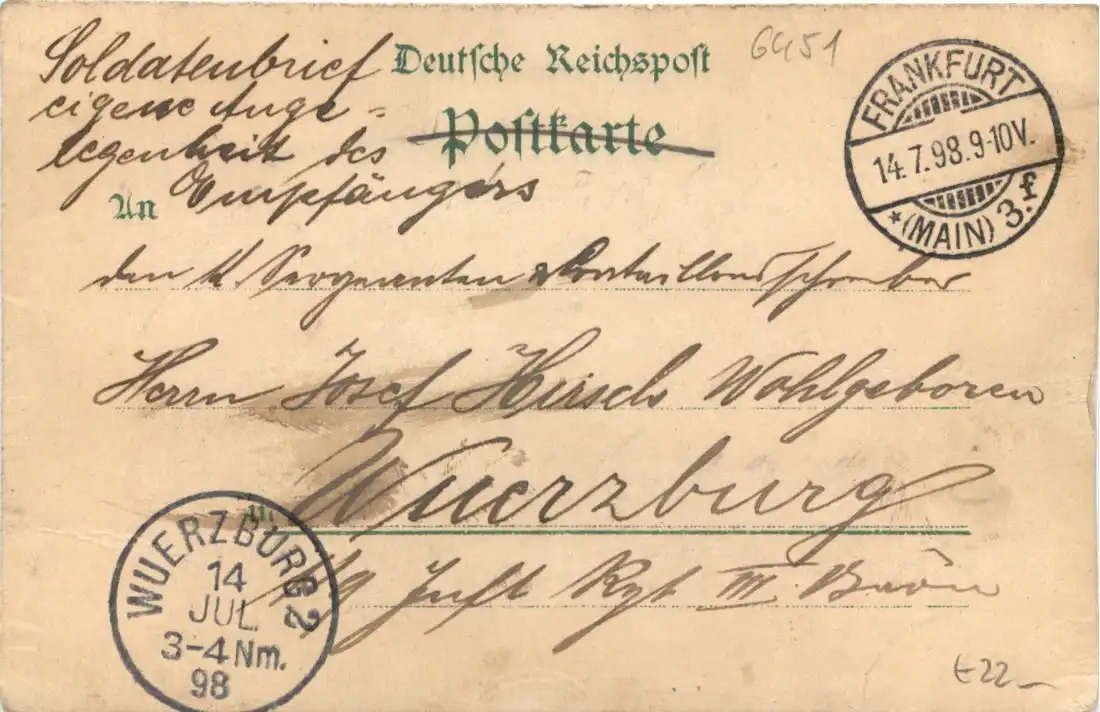 Soldatenbrief
eigene Ange-
legenheit des
Empfängers
Deutsche Reichspost
Postkarte
6451
FRANKFURT
14.7.98.9-10V.
*(MAIN) 3.f
An
den K. Sergeanten & Bataillonsschreiber
Herrn Josef Hirsch Wohlgeboren
in
Wuerzburg
Inft Rgt III.
WUERZBURG 2
14
JUL.
3-4 Nm.
98
€22-